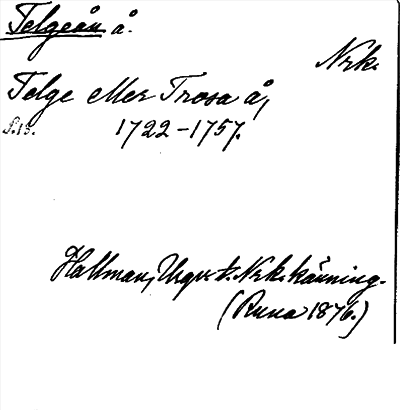 Telgeån å.
Nrk.
Telge eller Trosa å,
s.13. 1722-1757.
Hallman, Uppr. t. Nrk. känning.
(Runa 1876.)